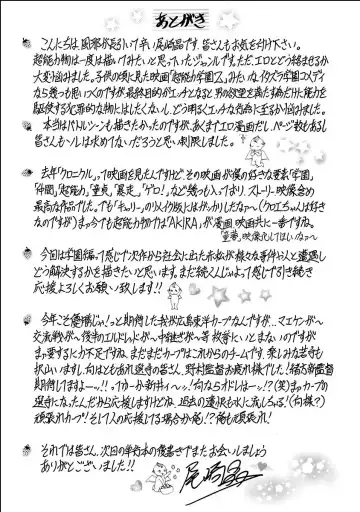 あとがき
こんにちは、風邪が長引いて辛い尾崎晶です。皆さんもお気を付け下さい。
超能力物は一度は描いてみたいと思っていたジャンルですが、エロとどう絡ませるか
大変悩みました。子供の頃に見た映画「超能力学園Z」みたいな、イタズラ学園コメディ
なら幾つも思いつくのですが最終目的がエッチとなると男の欲望を満たす為だけに能力を
駆使する犯罪的な物にはしたくないし、どう明るくエッチな行為に至るか悩みました。
本当はバトルシーンも描きたかったのですが、あくまでエロ漫画だし、ページ数もあるし
皆さんもソレは求めてないだろうと思い制限しました。
去年「クロニクル」って映画を見たんですけど、その映画が僕の好きな要素「学園」
「仲間」「超能力」「童貞」「暴走」「ゲロ！」など幾つも入っており、ストーリー・映像含め
最高な作品でした。でも「キャリー」のリメイク版にはがっかりしたなァ〜（クロエちゃんは好き
なのですが）まァ今でも超能力物では「AKIRA」が漫画、映画共に一番ですね。
「童夢」映像化してほしいなァ〜
今回は学園編って感じで次作から社会に出た赤松が様々な事件や人と遭遇し
どう解決するかを描きたいと思います。まだ続くんじょよって感じで引き続き
応援よろしくお願い致します!!
今年こそ優勝じゃ！っと期待した我が広島東洋カープなんですが…マエケンが〜
交流戦が〜後半のエルドレッドが〜中継ぎが〜等、枚挙にいとまないのですが
まァ要するに力不足ですね。まだまだカープはこれからのチームです。楽しみな若手も
沢山います。何はともあれ選手の皆さん、野村監督お疲れ様でした！緒方新監督
期待してますよーッ!!
頑張れカープ！
それでは皆さん、次回の単行本の後書きでまたお会いしましょう
ありがとうございました!!
尾崎晶